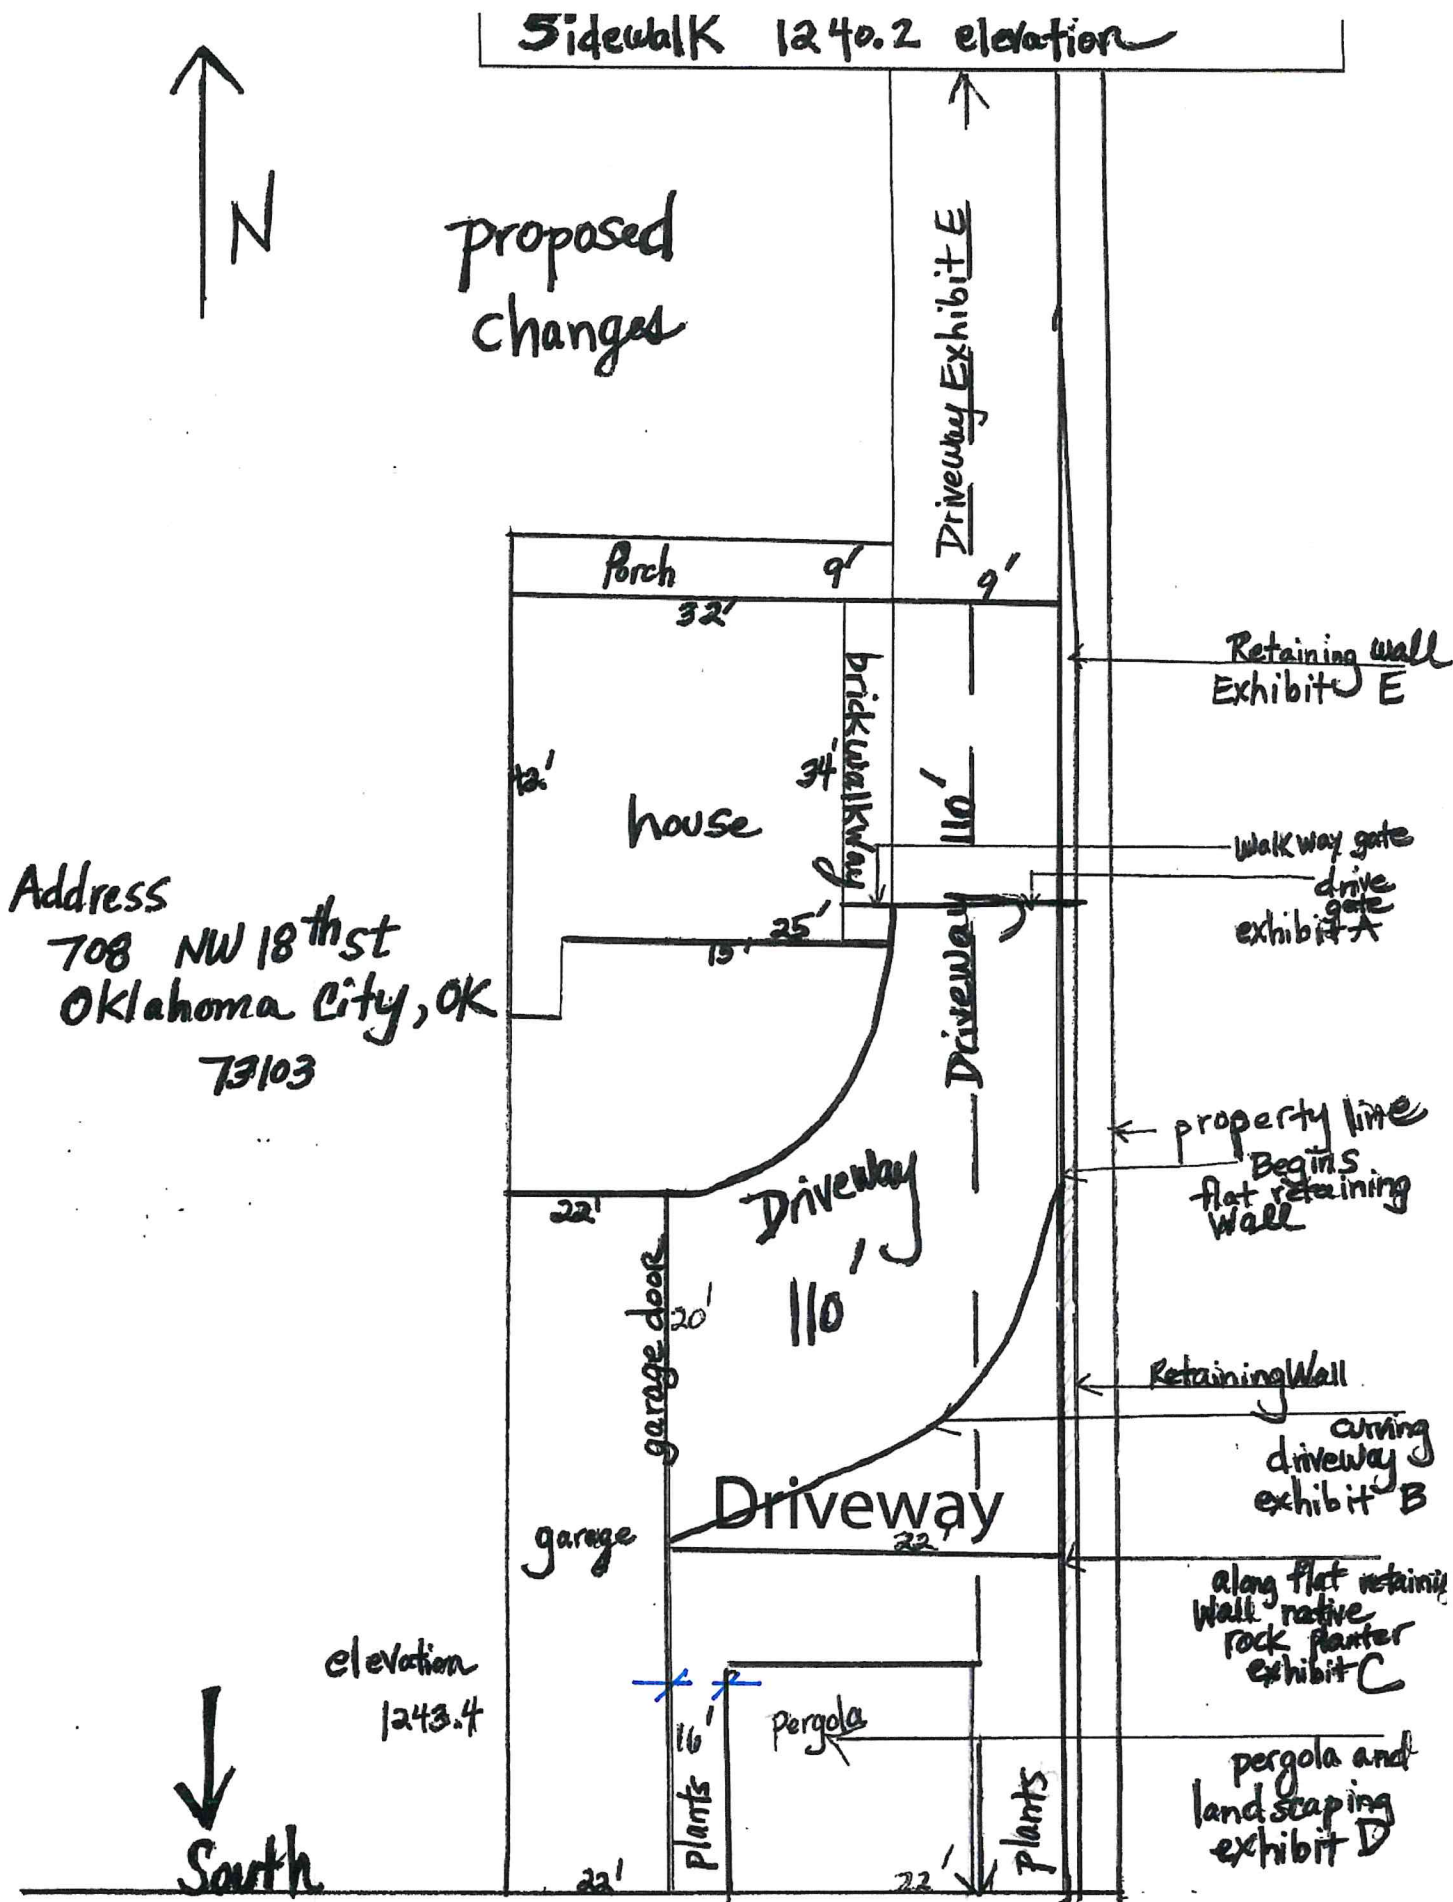 Sidewalk 1240.2 elevation
N
proposed
changes
Driveway Exhibit E
Porch
9'
9'
32'
Retaining wall
Exhibit E
brickwalkway
42'
34'
110'
house
Walkway gate
drive
gate
exhibit A
Address
708 NW 18th st
Oklahoma City, OK
73103
25'
15'
Driveway
property line
Begins
flat retaining
wall
22'
Driveway
110'
garage door
20'
Retaining Wall
curving
driveway
exhibit B
Driveway
22'
garage
along flat retaini
wall native
rock planter
exhibit C
elevation
1243.4
16'
pergola
plants
plants
pergola and
landscaping
exhibit D
South
22'
22'